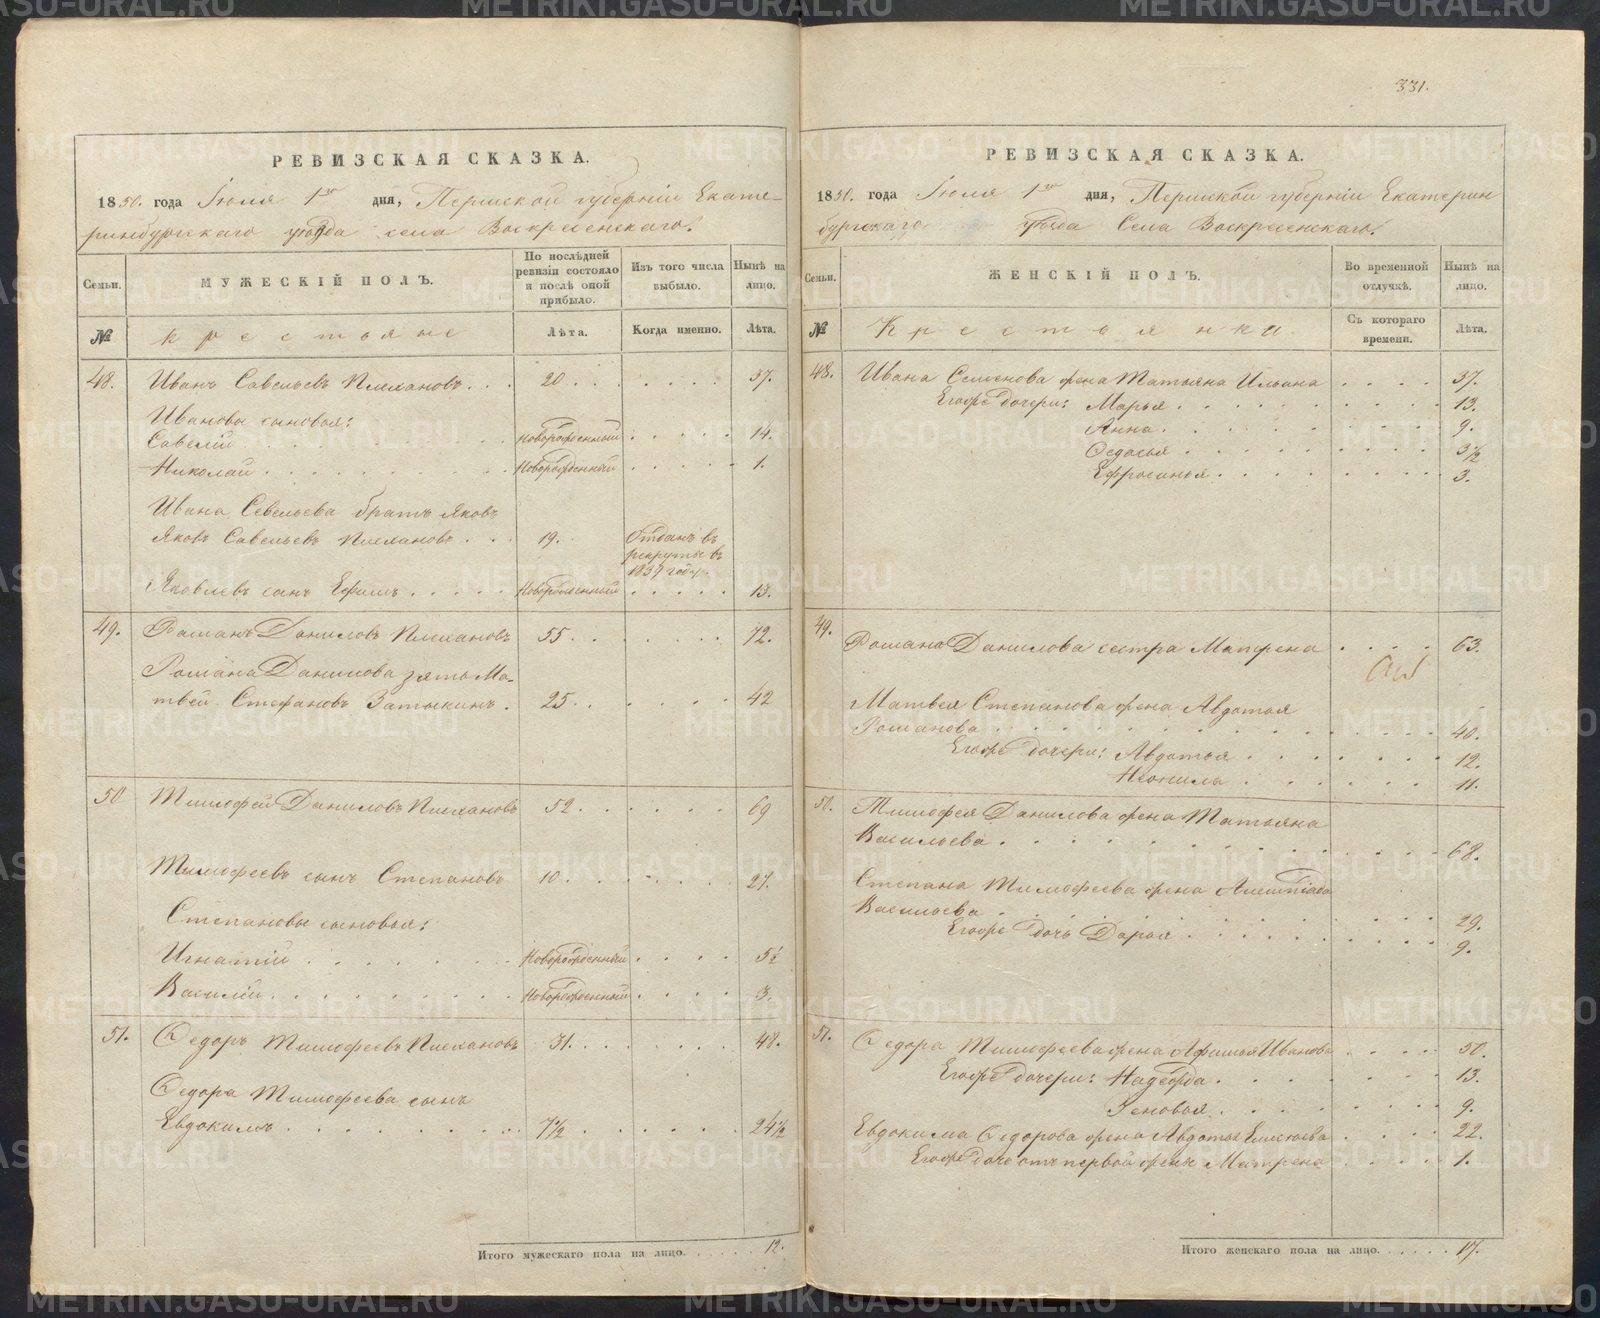 331.
РЕВИЗСКАЯ СКАЗКА.
1850. года Іюля 1го дня, Пермской губерніи Екате-
ринбургскаго уѣзда села Воскресенскаго.
Семьи.
МУЖЕСКІЙ ПОЛЪ.
По послѣдней ревизіи состояло и послѣ оной прибыло.
Изъ того числа выбыло.
Нынѣ на лицо.
№
крестьяне
Лѣта.
Когда именно.
Лѣта.
48. Иванъ Савельевъ Плехановъ . . . 20 . . . . . . . 37.
Ивановы сыновья:
Савелій . . . . . Новорожденный . . . . 14.
Николай . . . . . Новорожденный . . . . 1.
Ивана Савельева братъ Яковъ
Яковъ Савельевъ Плехановъ . . . 19. Отданъ въ
рекруты въ
1839 году.
Яковлевъ сынъ Ефимъ . . . . . Новорожденный . . . . . 13.
49. Романъ Даниловъ Плехановъ 55 . . . . . . 72.
Романа Данилова зять Ма-
твей Стефановъ Затыкинъ . 25 . . . . . . 42
50 Тимофей Даниловъ Плехановъ 52 . . . . . . 69
Тимофеевъ сынъ Степановъ 10 . . . . . . 27.
Степановы сыновья:
Игнатій . . . . . . . Новорожденный . . . . 5½
Василій . . . . . . . Новорожденный . . . . 3.
51. Ѳедоръ Тимофеевъ Плехановъ 31 . . . . . . . 48.
Ѳедора Тимофеева сынъ
Евдокимъ . . . . . . . . . . 7½ . . . . . . 24½
Итого мужескаго пола на лицо. . . . . . 12.
РЕВИЗСКАЯ СКАЗКА.
1850. года Іюля 1го дня, Пермской губерніи Екатерин
бургскаго уѣзда Села Воскресенскаго.
Семьи.
ЖЕНСКІЙ ПОЛЪ.
Во временной отлучкѣ.
Нынѣ на лицо.
№
Крестьянки
Съ котораго времени.
Лѣта.
48. Ивана Семенова жена Татьяна Ильина . . . . 37.
Егоже дочери: Марья . . . . . . . . . 13.
Анна . . . . . . . . . 9.
Ѳедосья . . . . . . . . . 3½
Ефросинья . . . . . . . . 3.
49. Романа Данилова сестра Матрена . . . . 63.
Матвея Степанова жена Авдотья
Романова . . . . . . . . . . . . 40.
Егоже дочери: Авдотья . . . . . . . 12.
Неонила . . . . . . 11.
50. Тимофея Данилова жена Татьяна
Васильева . . . . . . . . . . . 68.
Степана Тимофеева жена
Васильева . . . . . . . . . . . 29.
Егоже дочь Дарья . . . . . . . . 9.
51. Ѳедора Тимофеева жена Афимья Иванова . . . . 50.
Егоже дочери: Надежда . . . . . . . 13.
Зеновья . . . . . . . 9.
Евдокима Ѳедорова жена Авдотья . . . . 22.
Егоже дочь отъ первой жены Матрена . . . . 1.
Итого женскаго пола на лицо. . . . . . 17.
METRIKI.GASO-URAL.RU